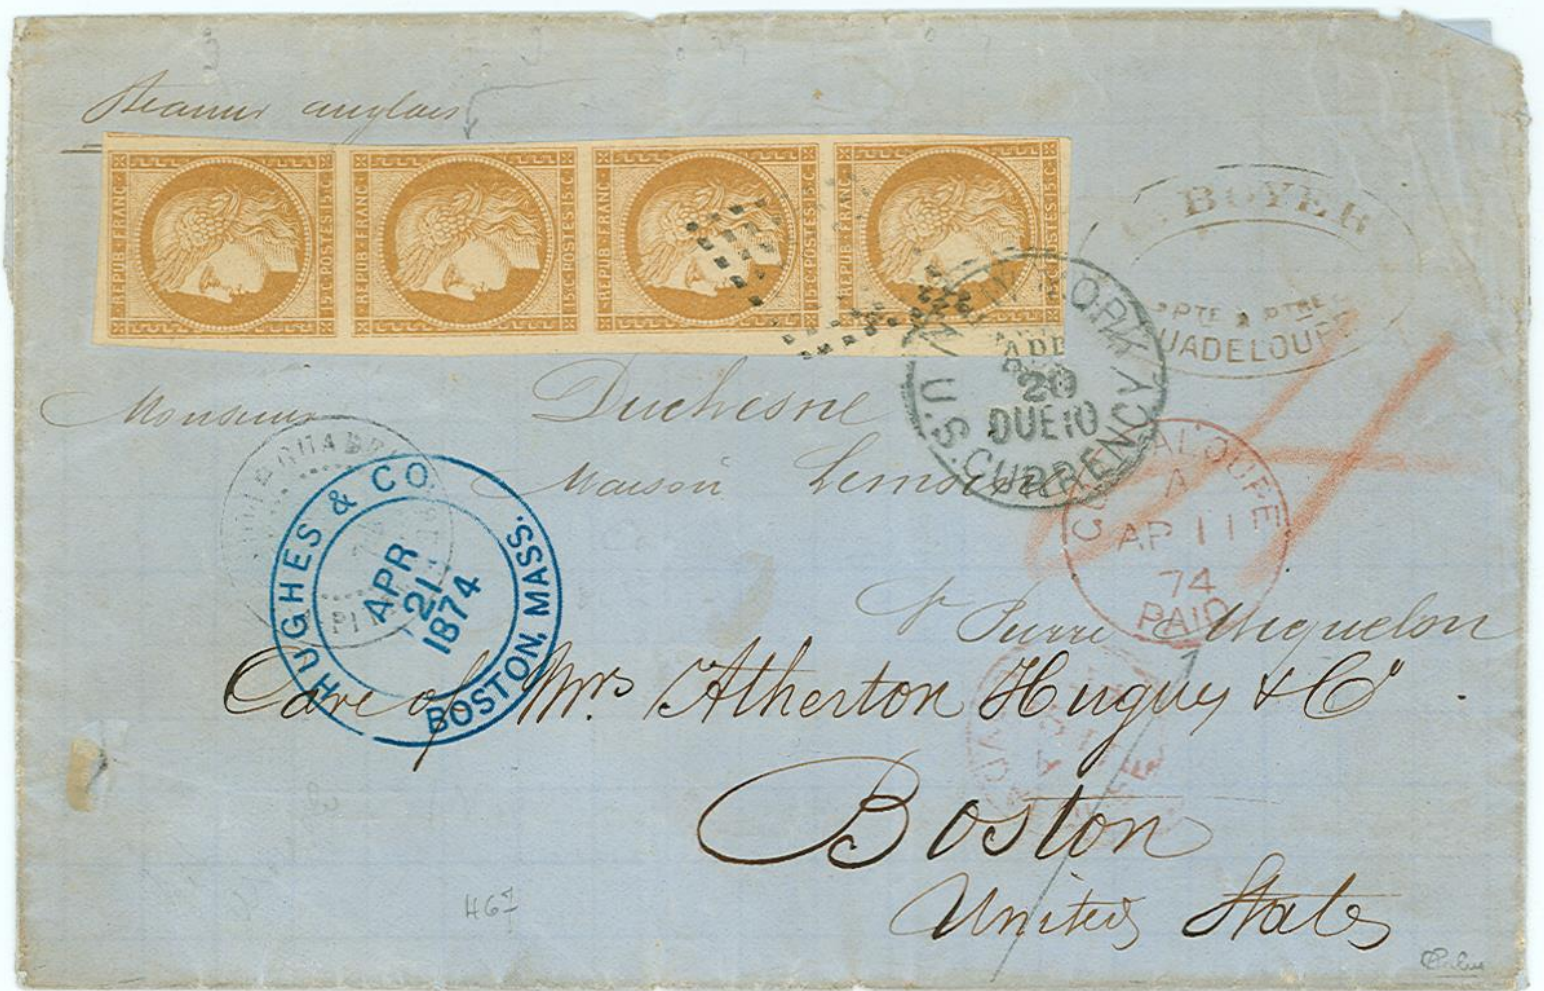 Steamer anglais
REPUB · FRANC 15 C. POSTES 15 C.
REPUB · FRANC 15 C. POSTES 15 C.
REPUB · FRANC 15 C. POSTES 15 C.
REPUB · FRANC 15 C. POSTES 15 C.
BOYER
PTE A PTRE
UADELOUPE
NEW YORK
APR
20
DUE 10
U.S. CURRENCY
Monsieur Duchesne
Maison
4
GUADALOUPE
A
AP 11
74
PAID
HUGHES & CO.
APR
21
1874
BOSTON, MASS.
St Pierre Miquelon
Care of Mrs Atherton Hugues & Co.
Boston
United States